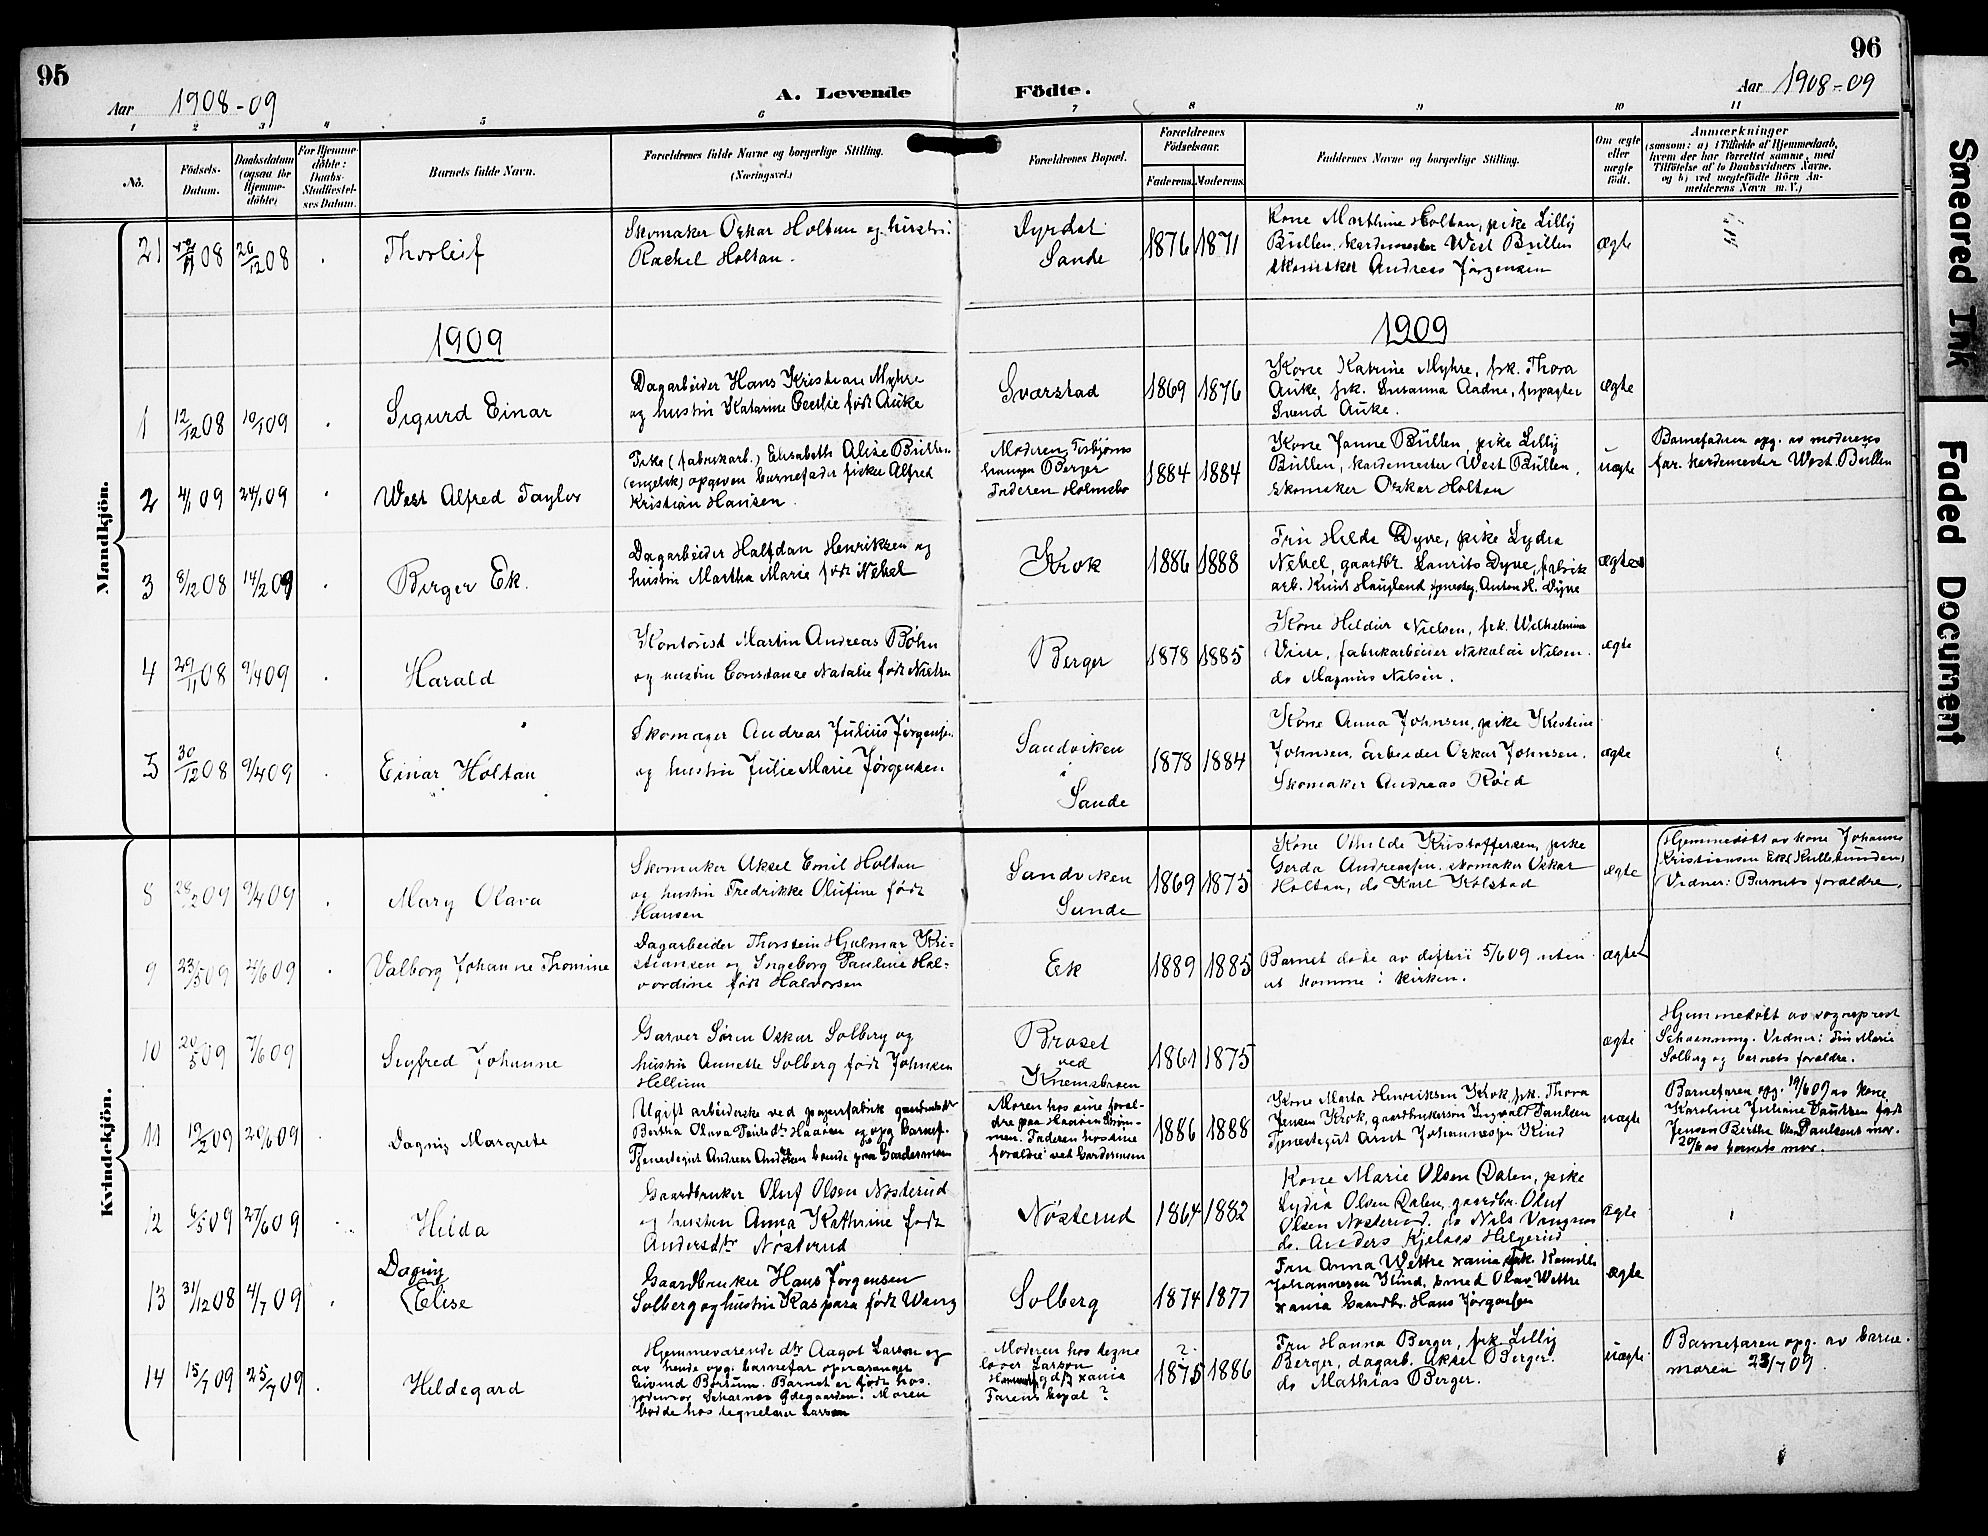 95
96
Aar 1908-09
A. Levende
Födte.
Aar 1908-09
1 2 3 4 5 6 7 8 9 10 11
No.
Födsels-
Datum.
Daabsdatum
(ogsaa for
Hjemme-
döbte)
For Hjemme-
döbte:
Daabs-
Stadfæstel-
ses Datum.
Barnets fulde Navn.
Forældrenes fulde Navne og borgerlige Stilling.
(Næringsvei.)
Forældrenes Bopæl.
Forældrenes
Födselsaar.
Faderens. Moderens.
Faddernes Navne og borgerlige Stilling.
Om ægte
eller
uægte
födt.
Anmærkninger
(saasom: a) i Tilfælde af Hjemmedaab,
hvem der har forrettet samme, med
Tilföielse af to Daabsvidners Navne.
og b) ved uægtefödte Börn An-
melderens Navn m. V.)
Mandkjön.
21 08 26/12 08
Thorleif
Skomaker Oskar Holtan og hustru
Rachel Holtan.
Dyrdal
Sande
1876 1871
Kone Marthine Holtan, pike Lilly
Bullen, kardemester West Bullen
skomaker Andreas Jørgensen
ægte
1909
1909
1 12/12 08 10/1 09
Sigurd Einar
Dagarbeider Hans Kristian Myhre
og hustru Katarine Cecilie født Auke
Sværstad
1869 1876
Kone Katrine Myhre, frk. Thora
Auke, frk. Susanna Aadne, forpagter
Svend Auke.
ægte
2 4/1 09 24/1 09
West Alfred Taylor
Pike (fabrikarb.) Elisabeth Alise Bullen
(engelsk) opgiven barnefader fisker Alfred
Kristian Hansen.
Berger
Faderen Holmsbo
1884 1884
Kone Janne Büllen, pike Lilly
Bullen, kardemester West Büllen,
skomaker Oskar Holtan
uægte
Barnefaderen opg. av moderens
far. kardemester West Bullen
3 8/12 08 14/2 09
Berger Ek.
Dagarbeider Halfdan Henriksen og
hustru Martha Marie født Nehel
Krok
1886 1888
Fru Hilda Dyve, pike Lydia
Nehel, gaardbr Laurits Dyve, fabrik
arb. Knut Haugland, tjenesteg. Anton H. Dyve
ægte
4 29/11 08 9/4 09
Harald
Kontorist Martin Andreas Bøhn
og hustru Constanse Natalie født Nielsen
Berger
1878 1885
Kone Hildur Nielsen, frk. Welhelmina
fabrikarbeider Nikolai Nilsen.
do Magnus Nilsen.
ægte
5 30/12 08 9/4 09
Einar Holtan
Skomager Andreas Julius Jørgensen
og hustru Julie Marie Jørgensen
Sandviken
i
Sande
1878 1884
Kone Anna Johnsen, pike Kristine
Johnsen, arbeider Oskar Johnsen.
Skomaker Andreas Røed
ægte
Kvindekjön.
8 28/2 09 9/4 09
Mary Olava
Skomaker Aksel Emil Holtan
og hustru Fredrikke Olufine født
Hansen
Sandviken
Sande
1869 1875
Kone Othilde Kristoffersen, pike
Gerda Andreassen. skomaker Oskar
Holtan, do Karl Kolstad
ægte
Hjemmedøbt av kone Johanne
Kristiansen Ek (Kullebunden)
Vidner: Barnets foraldre.
9 23/5 09 4/6 09
Valborg Johanne Thomine
Dagarbeider Thorstein Hjalmar Kri-
stiansen og Ingeborg Pauline Hal-
vordine født Halvorsen
Ek
1889 1885
Barnet døde av difteri 5/6 09 uten
at komme i kirken.
ægte
10 20/5 09 7/6 09
Sigfred Johanne
Garver Søren Oskar Solberg og
hustru Annette Solberg født Johnsen
Hellum
Bruset
ved
Knemsbroen
1861 1875
ægte
Hjemmedøbt av sogneprest
Schanning. Vidner: Fru Marie
Solberg og barnets foraldre.
11 19/2 09 20/6 09
Dagny Margrete
Ugift arbeiderske ved papirfabrik
Bertha Olava Haaven og opg barnef.
Tjenestegut Andreas boende paa Gardermoen
Moren hos sine foræl-
dre paa Haaven
Faderen hos sine
foraldre ved
1886 1888
Kone Marta Henriksen Krok, frk. Thora
Jensen Krok, gaardbrukersøn Ingvald Paulsen
Tjenestegut Arnt Johannessen Kind
uægte
Barnefaren opg. 19/6 09 av kone
Karoline Juliane født
Jensen Berthe Paulsens mor.
20/6 av barnets mor.
12 6/5 09 27/6 09
Hilda
Gaardbruker Oluf Olsen Nøsterud
og hustru Anna Kathrine født
Andersdtr Nøsterud
Nøsterud
1864 1882
Kone Marie Olsen Dalen, pike
Lydia Olsen Dalen, gaardbr. Oluf
Olsen Nøsterud. do Nils
do. Anders Kjelsås Helgerud
ægte
13 31/12 08 4/7 09
Dagny
Elise
Gaardbruker Hans Jørgensen
Solberg og hustru Kaspara født Wang
Solberg
1874 1877
Fru Anna Wettre xania frk. Kamilla
Johannesen Olav Wettre
xania Gaardbr. Hans Jørgensen
ægte
14 15/7 09 25/7 09
Hildegard
Hjemmeværende dtr Aagot Larson og
av hende opg. barnefar
Eivind Børsum. Barnet er født hos
jordmor Moren
bodde hos tegnelærer Larson
Moderen hos tegne
lærer Larson
xania
Farens bopæl ?
?
1875 1886
Fru Hanna Berger, frk Lilly
Berger, dagarb. Aksel Berger.
do Mathias Berger.
uægte
Barnefaren opg. av barne
moren 23/7 09.
Smeared Ink
Faded Document